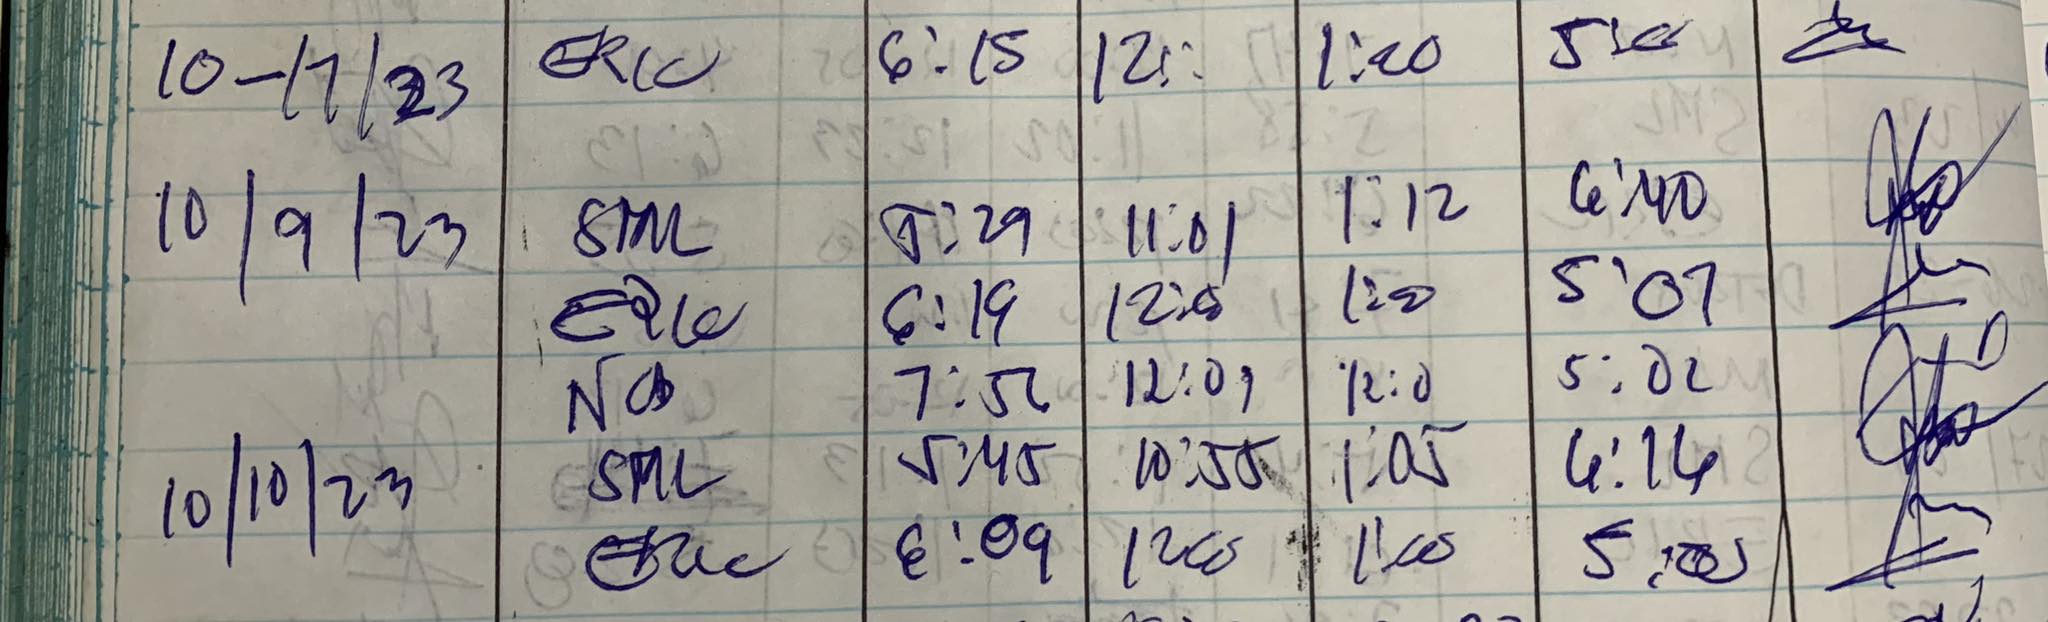 10-/7/23 ERIC 6:15 12: 1:00 5:00
10/9/23 SML 5:29 11:01 1:12 6:40
ERIC 6:19 12:0 1:0 5:07
7:52 12:09 12:0 5:02
10/10/23 SML 5:45 10:55 1:05 6:14
ERIC 6:09 1200 1:00 5:05